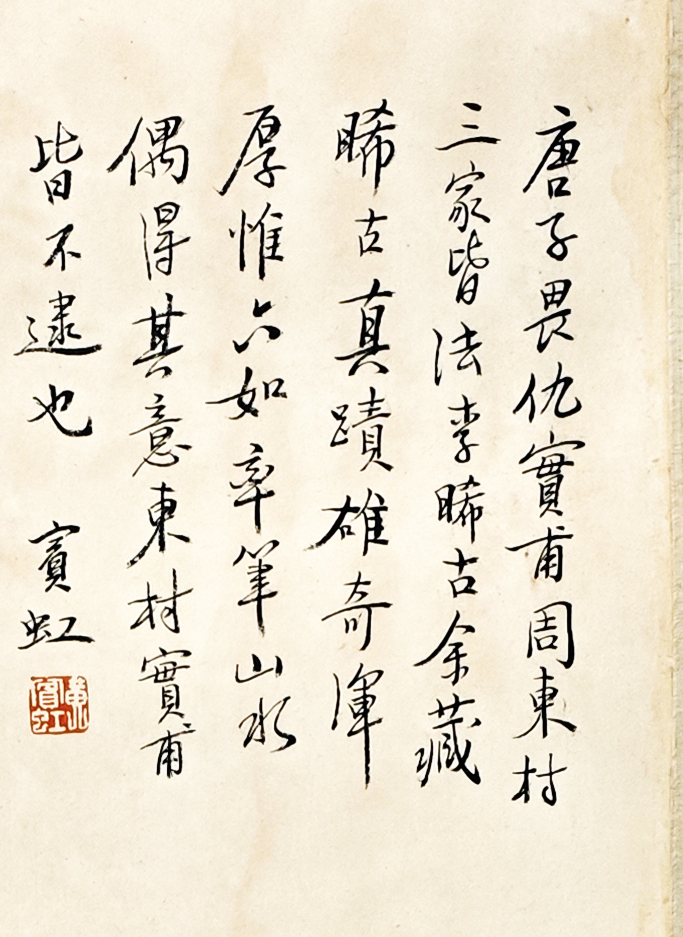 唐子畏仇實甫周東村
三家皆法李晞古余藏
晞古真蹟雄奇渾
厚惟六如率筆山水
偶得其意東村實甫
皆不逮也 賓虹
黃賓虹